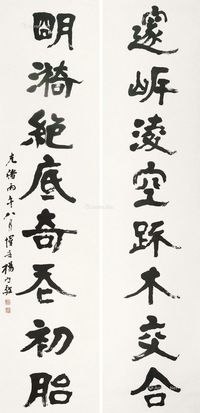 邃岓淩空跡木交合
明漪絕底奇丕初胎
光緒丙午八月惺吾楊守敬